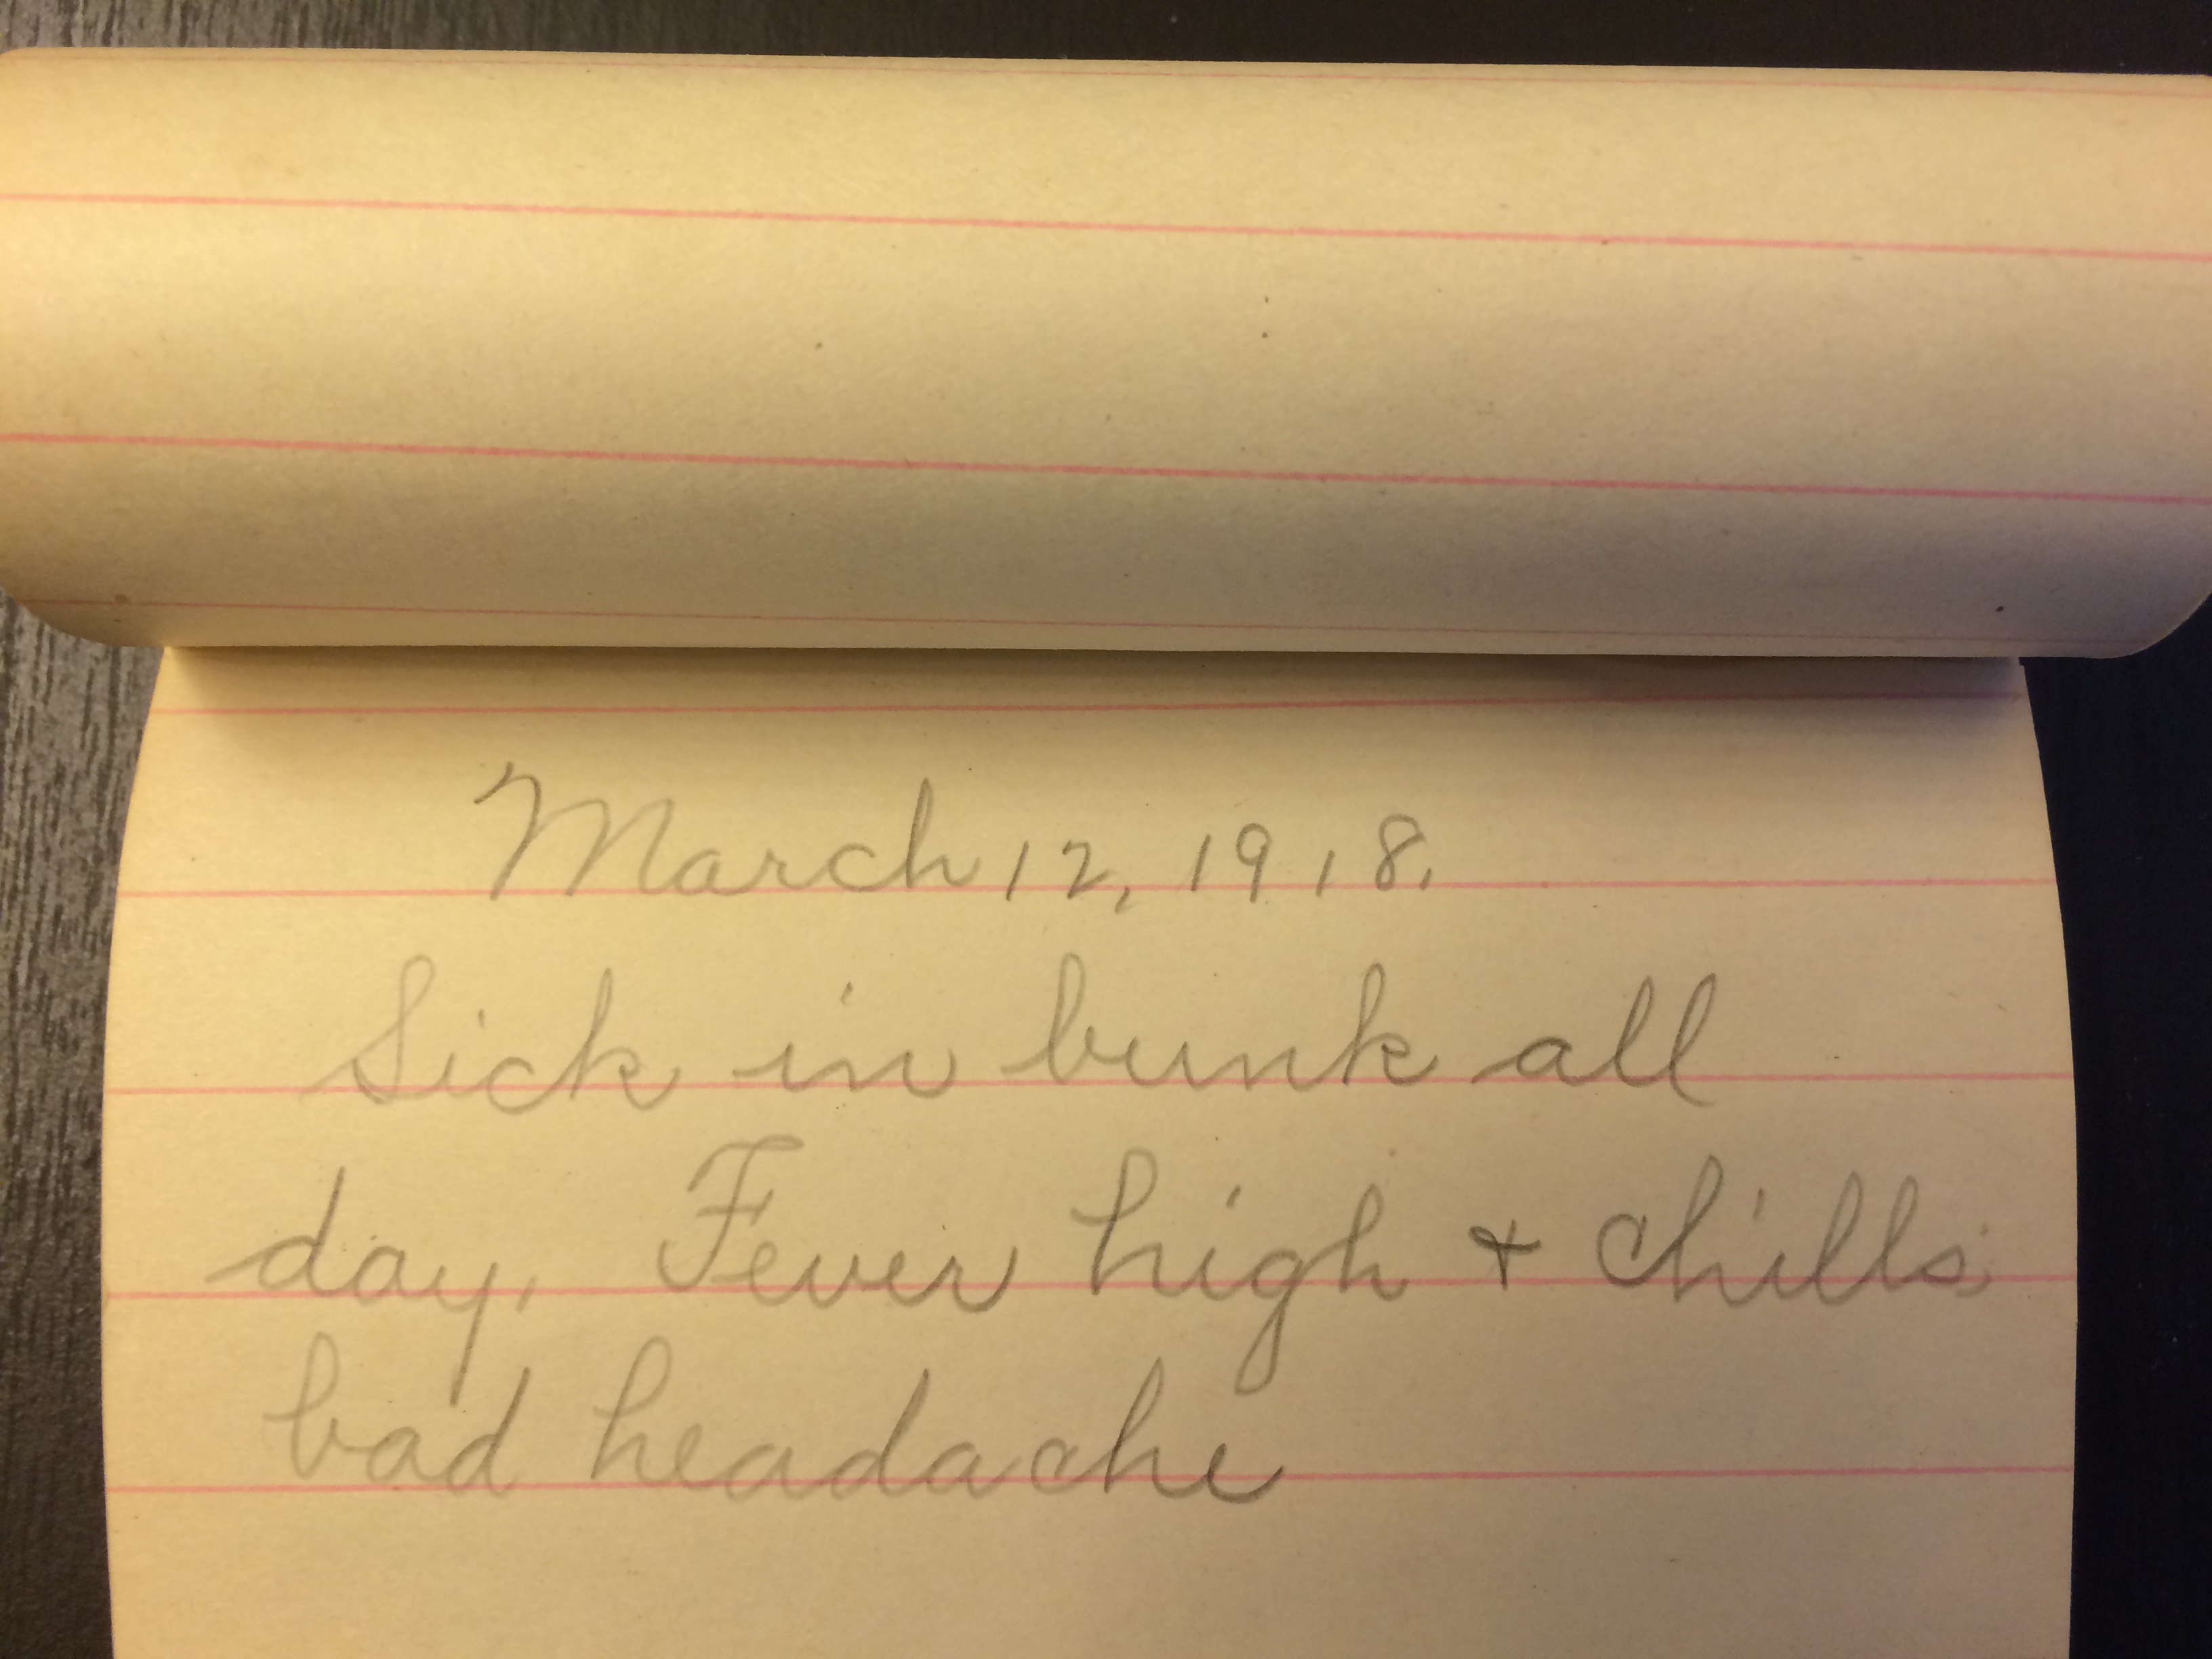 March 12, 1918.
Sick in bunk all
day. Fever high + chills
bad headache